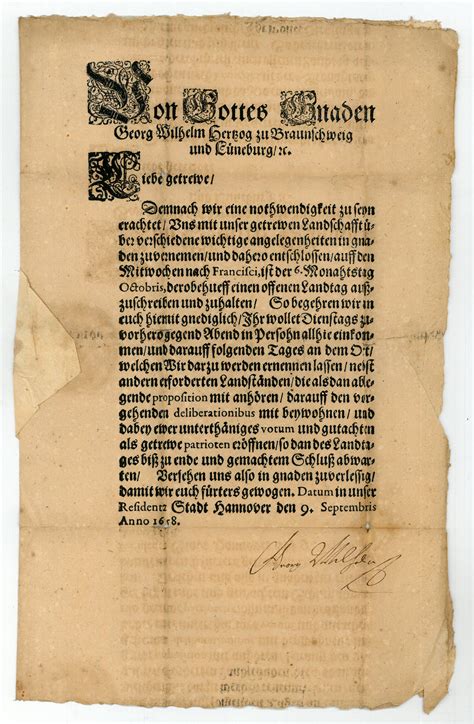 Von Gottes Gnaden
Georg Wilhelm Hertzog zu Braunschweig
und Lüneburg/ꝛc.
Liebe getrewe/
Demnach wir eine nothwendigkeit zu seyn
erachtet/ Uns mit unser getrewen Landschafft ü-
ber verschiedene wichtige angelegenheiten in gna-
den zuvernemen/ und dahero entschlossen/ auff den
Mitwochen nach Francisci, ist der 6. Monahtstag
Octobris, derobehueff einen offenen Landtag auß-
zuschreiben und zuhalten/ So begehren wir in
euch hiemit gnediglich/ Ihr wollet Dienstags zu-
vorhero gegend Abend in Persohn allhie einkom-
men/ und darauff folgenden Tages an dem Ort/
welchen Wir darzu werden ernennen lassen/ nebst
andern erforderten Landständen/ die als dan able-
gende proposition mit anhören/ darauff den vor-
gehenden deliberationibus mit beywohnen/ und
dabey ewer unterthäniges votum und gutachten
als getrewe patrioten eröffnen/ so dan des Landta-
ges biß zu ende und gemachtem Schluß abwar-
ten/ Versehen uns also in gnaden zuverlessig/
damit wir euch fürters gewogen. Datum in unser
Residentz Stadt Hannover den 9. Septembris
Anno 1658.
Georg Wilhelm